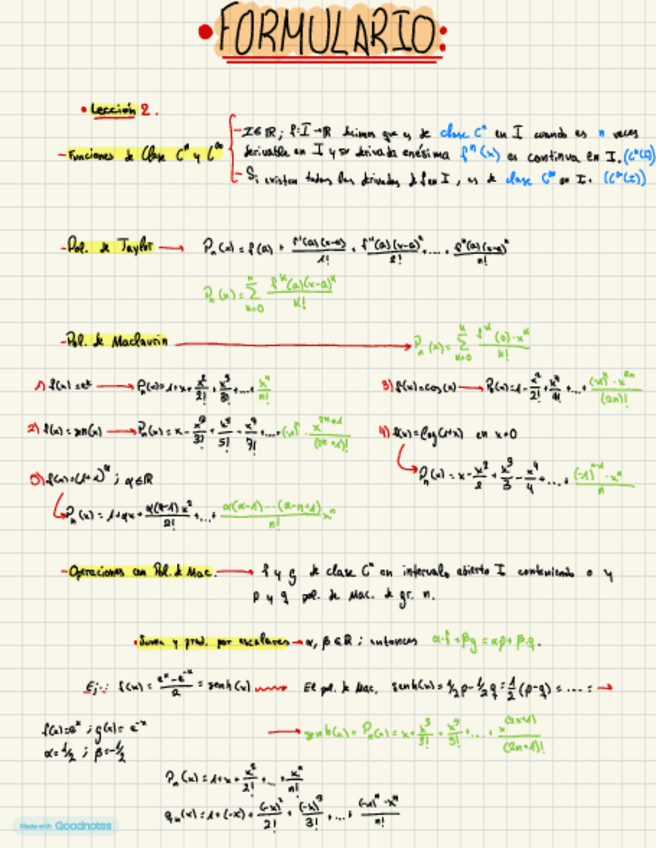 • FORMULARIO:
• Lección 2.
- Funciones de Clase Cⁿ y C^∞
- I ∈ ℝ; f: I → ℝ decimos que es de clase Cⁿ en I cuando es n veces
derivable en I y su derivada enésima fⁿ(x) es continua en I. (Cⁿ(I))
- Si existen todas las derivadas de f en I, es de clase C^∞ en I. (C^∞(I))
- Pol. de Taylor → Pₙ(x) = f(a) + f'(a)(x-a)/1! + f''(a)(x-a)²/2! + .... + fⁿ(a)(x-a)ⁿ/n!
Pₙ(x) = Σ_{k=0}^{n} f^k(a)(x-a)^k/k!
- Pol. de Maclaurin → Pₙ(x) = Σ_{k=0}^{k} f^k(0)·x^k/k!
1) f(x) = eˣ → Pₙ(x) = 1 + x + x²/2! + x³/3! + ... + xⁿ/n!
3) f(x) = cos(x) → Pₙ(x) = 1 - x²/2! + x⁴/4! + ... + (-1)ⁿ·x²ⁿ/(2n)!
2) f(x) = sen(x) → Pₙ(x) = x - x³/3! + x⁵/5! - x⁷/7! + ... + (-1)ⁿ·x²ⁿ⁺¹/(2n+1)!
4) f(x) = log(1+x) en x=0
→ Pₙ(x) = x - x²/2 + x³/3 - x⁴/4 + ... + (-1)ⁿ⁻¹·xⁿ/n
5) f(x) = (1+x)^α; α ∈ ℝ
→ Pₙ(x) = 1 + αx + α(α-1)x²/2! + ... + α(α-1)···(α-n+1)/n! xⁿ
- Operaciones con Pol. de Mac. → f y g de clase Cⁿ en intervalo abierto I conteniendo 0 y
p y q pol. de Mac. de gr. n.
• Suma y prod. por escalares → α, β ∈ ℝ; entonces α·f + βg = αp + βq.
Ej.: f(x) = (eˣ - e⁻ˣ)/2 = senh(x) → El pol. de Mac. senh(x) = 1/2 p - 1/2 q = 1/2 (p-q) = .... = →
f(x) = eˣ; g(x) = e⁻ˣ
α = 1/2; β = -1/2
→ senh(x) = Pₙ(x) = x + x³/3! + x⁵/5! + ... + x^(2n+1)/(2n+1)!
Pₙ(x) = 1 + x + x²/2! + ... + xⁿ/n!
qₙ(x) = 1 + (-x) + (-x)²/2! + (-x)³/3! + ... + (-1)ⁿ·xⁿ/n!
Made with Goodnotes